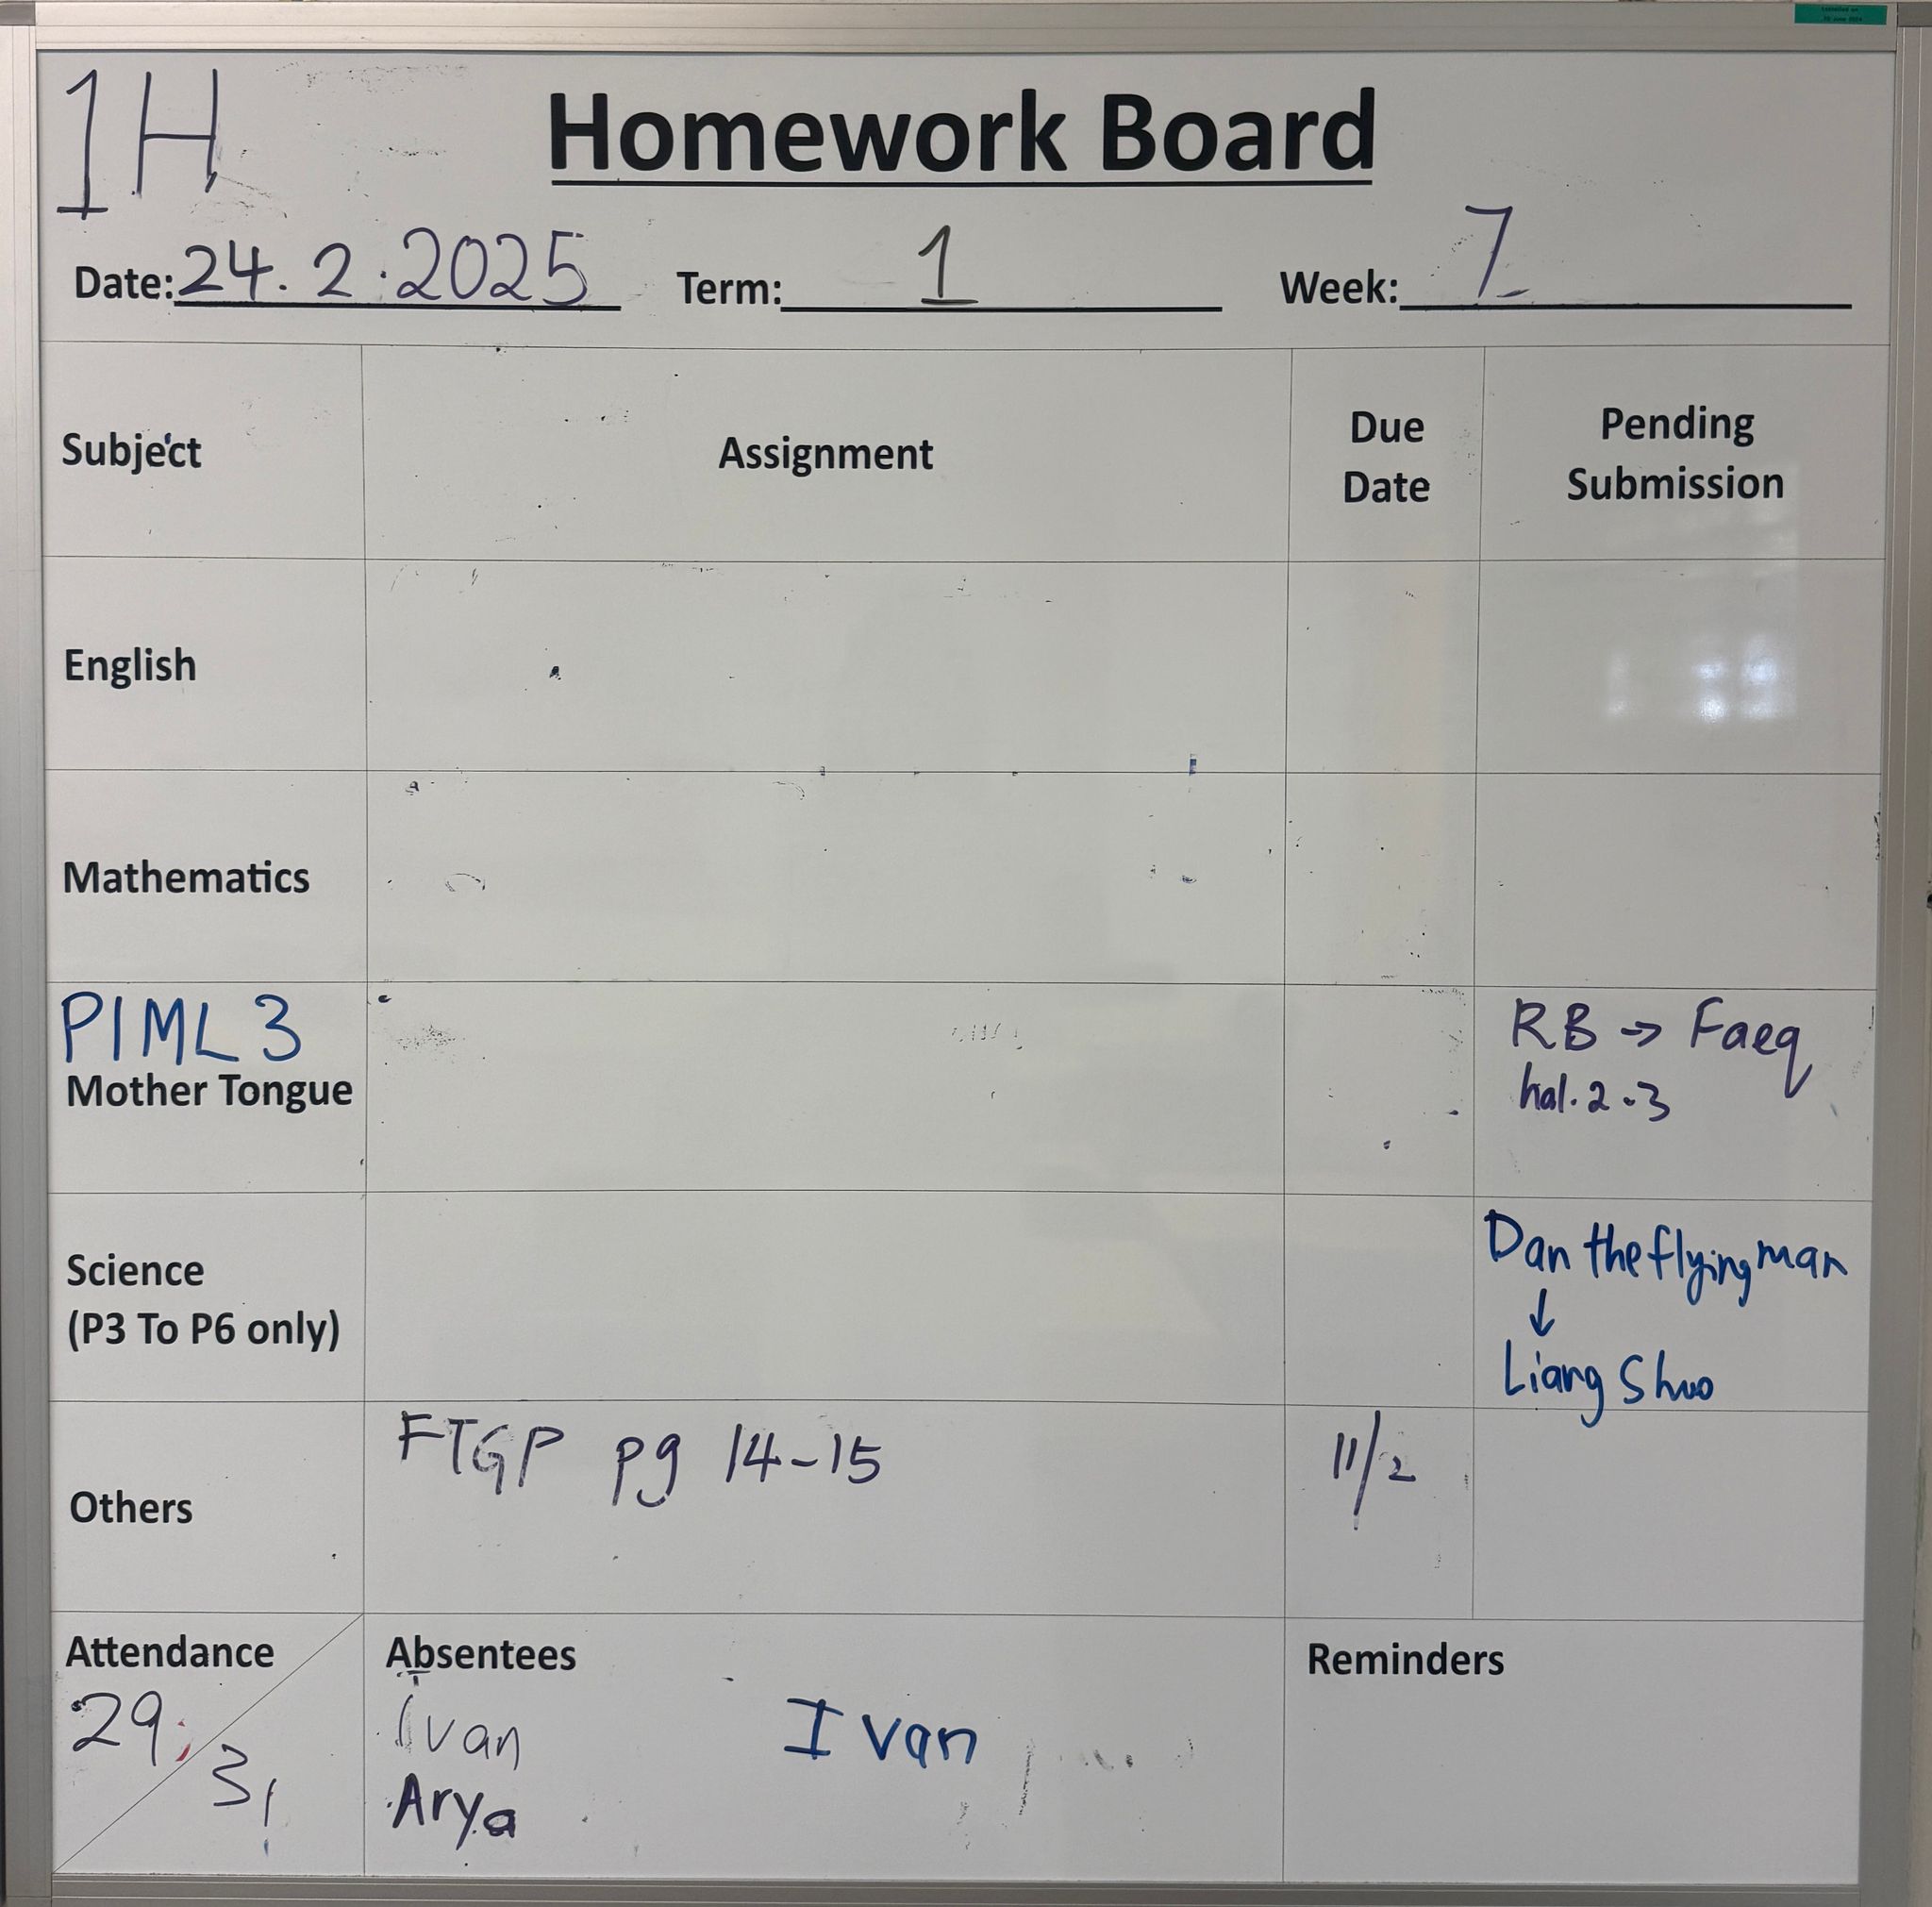 1H
Homework Board
Date: 24.2.2025 Term: 1 Week: 7
Subject Assignment Due Date Pending Submission
English
Mathematics
P1ML3
Mother Tongue
RB → Faeq
hal. 2-3
Science
(P3 To P6 only)
Dan the flying man
↓
Liang Shuo
Others FTGP pg 14-15 11/2
Attendance Absentees Reminders
29 31
Ivan Ivan
Arya